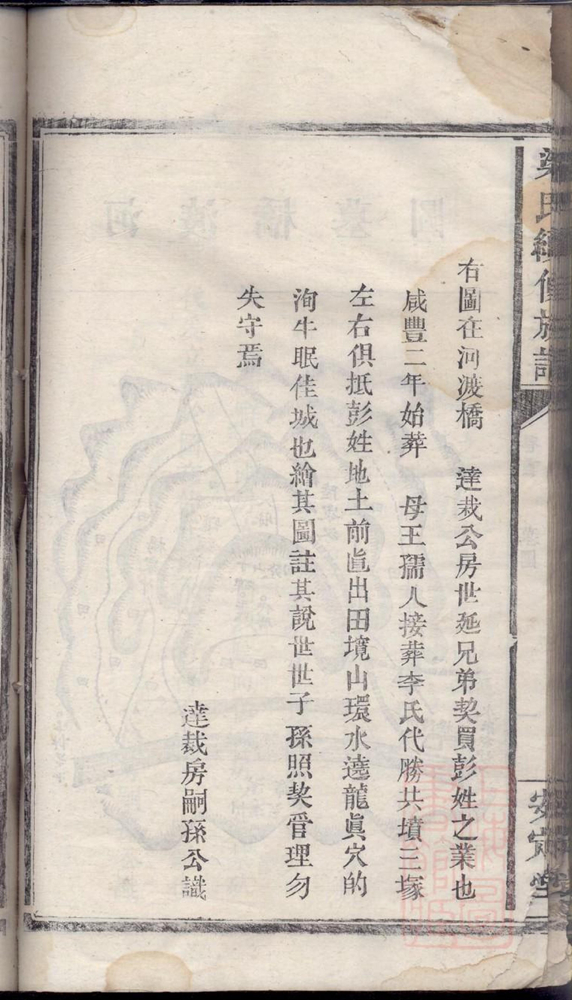 梁氏續修族譜
安定堂
右圖在河渡橋 達裁公房世延兄弟契買彭姓之業也
咸豐二年始葬 母王孺人接葬李氏代勝共墳三塚
左右俱抵彭姓地土前直出田墈山環水遶龍眞穴的
洵牛眠佳城也繪其圖註其說世世子孫照契管理勿
失守焉
達裁房嗣孫公識